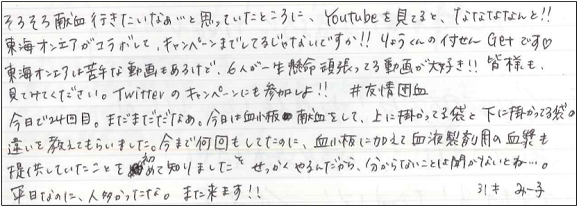 そろそろ献血行きたいなぁ…と思っていたところに、Youtubeを見てると、なななななんと!!
東海オンエアがコラボして、キャンペーンまでしてるじゃないですか!! りょうくんの付せんGetです♡
東海オンエアは苦手な動画もあるけど、6人が一生懸命頑張ってる動画が大好き!! 皆様も、
見てみてください。Twitterのキャンペーンにも参加しよ!! #友情団血
今日で24回目。まだまだだなぁ。今日は血小板献血をして、上に掛かってる袋と下に掛かってる袋の
違いを教えてもらいました。今まで何回もしてたのに、血小板に加えて血液製剤用の血漿も
提供していたことを初めて知りました。せっかくやるんだから、分からないことは聞かないとね…。
平日なのに、人多かったな。また来ます!! みー子